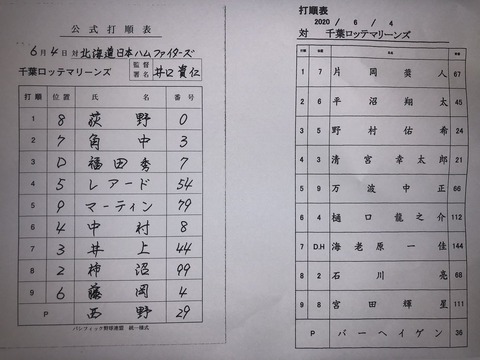 公式打順表
6月4日対北海道日本ハムファイターズ
千葉ロッテマリーンズ 監督署名 井口資仁
打順 位置 氏名 番号
1 8 荻野 0
2 7 角中 3
3 D 福田秀 7
4 5 レアード 54
5 9 マーティン 79
6 4 中村 8
7 3 井上 44
8 2 柿沼 99
9 6 藤岡 4
P 西野 29
パシフィック野球連盟 統一様式
打順表
2020 / 6 / 4
対 千葉ロッテマリーンズ
1 7 片岡奨人 67
2 6 平沼翔太 45
3 5 野村佑希 24
4 3 清宮幸太郎 21
5 9 万波中正 66
6 4 樋口龍之介 112
7 D.H 海老原一佳 144
8 2 石川亮 68
9 8 宮田輝星 111
P バーヘイゲン 36